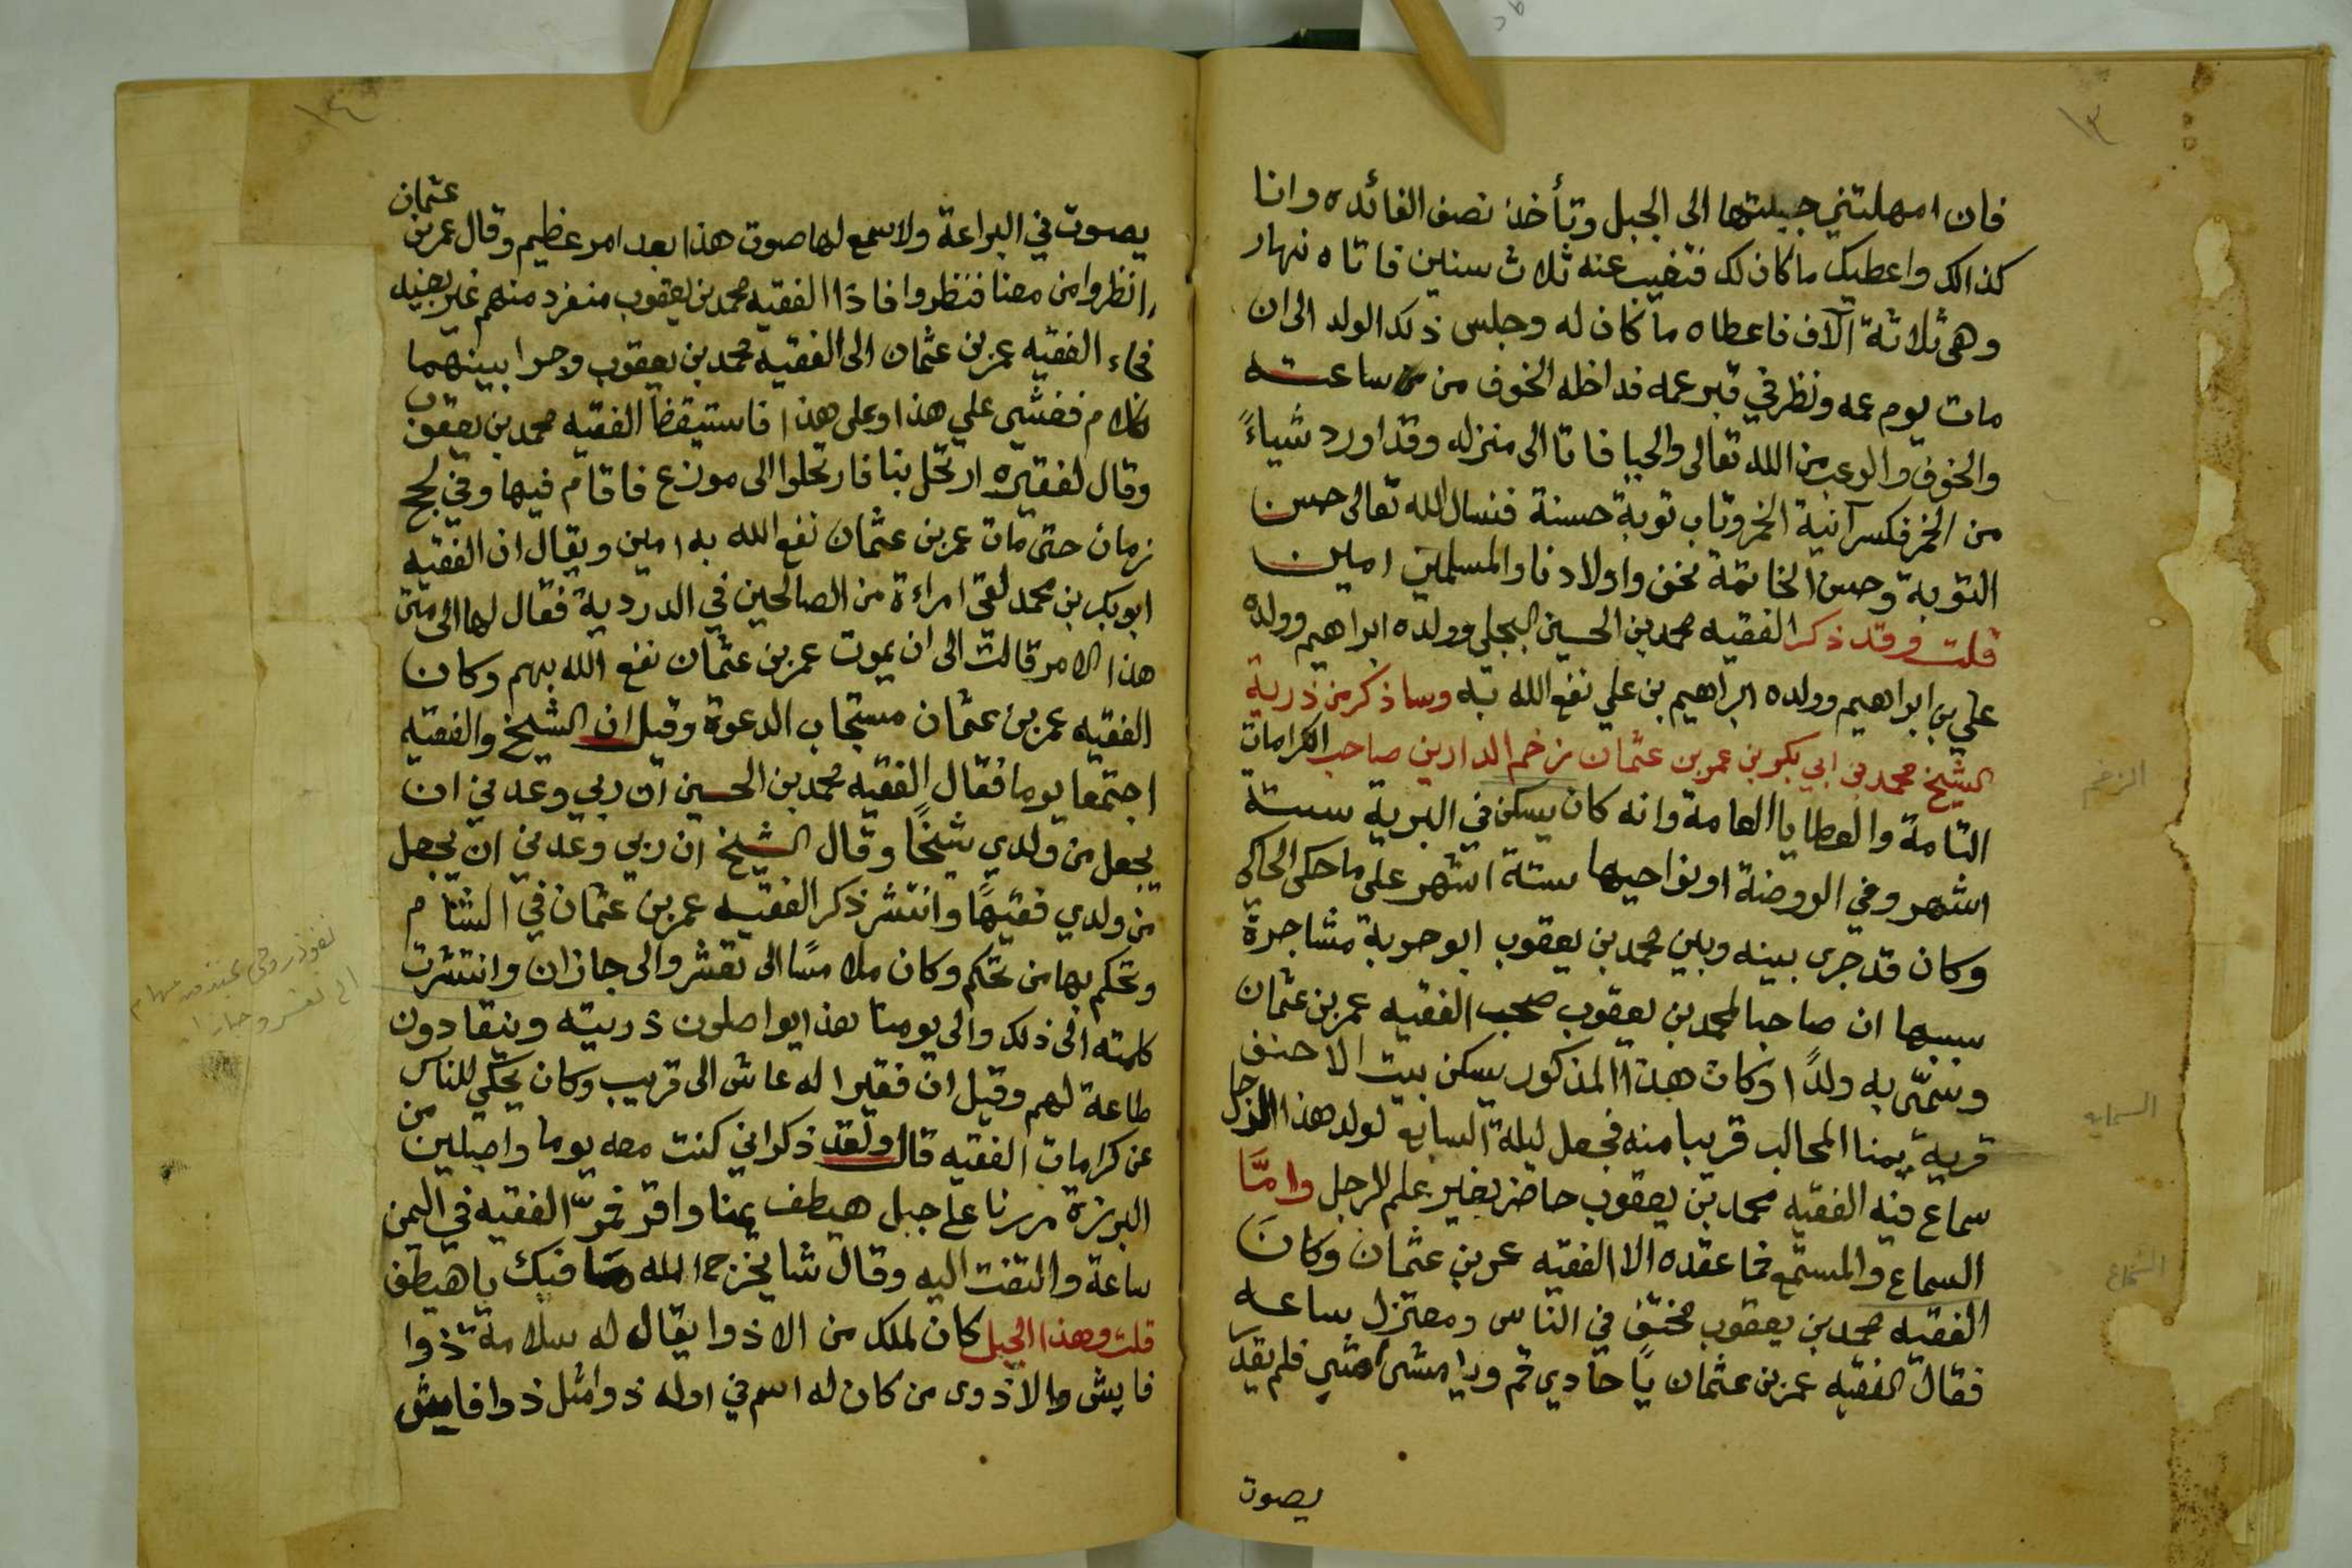 ١٣
فان امهلتني جيبتها الى الجبل وتأخذ نصف الفائده وانا
كذالك واعطيك ماكان لك فتغيب عنه ثلاث سنين فاتاه نهار
وهى ثلاثة آلاف فاعطاه ماكان له وجلس ذلك الولد الى ان
مات يوم عمه ونظر في قبر عمه فداخله الخوف من ساعته
والخوف والرعب من الله تعالى والحيا فاتا الى منزله وقد اورد شياءً
من الخمر فكسر آنية الخمر وتاب توبة حسنة فنسال الله تعالى حسن
التوبة وحسن الخاتمة نحن واولادنا والمسلمين امين
قلت وقد ذكر الفقيه محمد بن الحسين البجلي وولده ابراهيم وولده
علي بن ابراهيم وولده ابراهيم بن علي نفع الله به وساذكر من ذرية
الشيخ محمد بن ابي بكر بن عمر بن عثمان زخم الدارين صاحب الكرامات
التامة والعطايا العامة وانه كان يسكن في البرية ستة
اشهر وفي الروضة او نواحيها ستة اشهر على ما حكى الحاكي
وكان قد جرى بينه وبين محمد بن يعقوب ابو حربة مشاجرة
سببها ان صاحبا لمحمد بن يعقوب صحب الفقيه عمر بن عثمان
وسمّى به ولدًا وكان هذا المذكور يسكن بيت الاحنف
قرية يمنا المحالب قريبا منه فجعل ليلة السابع لولد هذا الرجل
سماع فيه الفقيه محمد بن يعقوب حاضر بغير علم الرجل وامّا
السماع والمستمع فما عقده الا الفقيه عمر بن عثمان وكان
الفقيه محمد بن يعقوب مختف في الناس ومعتزل ساعه
فقال الفقيه عمر بن عثمان يا حادي قم ويا مشى امشي فلم يقدر
يصوت
الزخم
السماع
١٤
عثمان
يصوت في البراعة ولا سمع لها صوت هذا بعد امر عظيم وقال عمر بن
انظروا من معنا فنظروا فاذا الفقيه محمد بن يعقوب منفرد منهم غير بعيد
فجاء الفقيه عمر بن عثمان الى الفقيه محمد بن يعقوب وجرا بينهما
كلام فغشي علي هذا وعلى هذا فاستيقظ الفقيه محمد بن يعقوب
وقال لفقيره ارتحل بنا فارتحلوا الى موزع فاقام فيها وفي لحج
زمان حتى مات عمر بن عثمان نفع الله به امين ويقال ان الفقيه
ابو بكر بن محمد لقى امراءة من الصالحين في الدردية فقال لها الى متى
هذا الامر قالت الى ان يموت عمر بن عثمان نفع الله بهم وكان
الفقيه عمر بن عثمان مستجاب الدعوة وقيل ان الشيخ والفقيه
اجتمعا يوما فقال الفقيه محمد بن الحسين ان ربي وعدني ان
يجعل من ولدي شيخًا وقال الشيخ ان ربي وعدني ان يجعل
من ولدي فقيهًا وانتشر ذكر الفقيه عمر بن عثمان في الشام
وتحكم بها من تحكم وكان ملامسًا الى تعشر والى جازان وانتشرت
كلمته الى ذلك والى يومنا هذا يواصلون ذريته وينقادون
طاعة لهم وقيل ان فقيرا له عاش الى قريب وكان يحكي للناس
عن كرامات الفقيه قال ولقد ذكر اني كنت معه يوما واصلين من
البرزة مررنا على جبل هيطف يمنا واقر فمرّ الفقيه في اليمن
ساعة والتفت اليه وقال شا يخزج الله فيك يا هيطف
قلت وهذا الجبل كان لملك من الاذوا يقال له سلامة ذوا
فايش والاذوى من كان له اسم في اوله ذوا مثل ذوا فايش